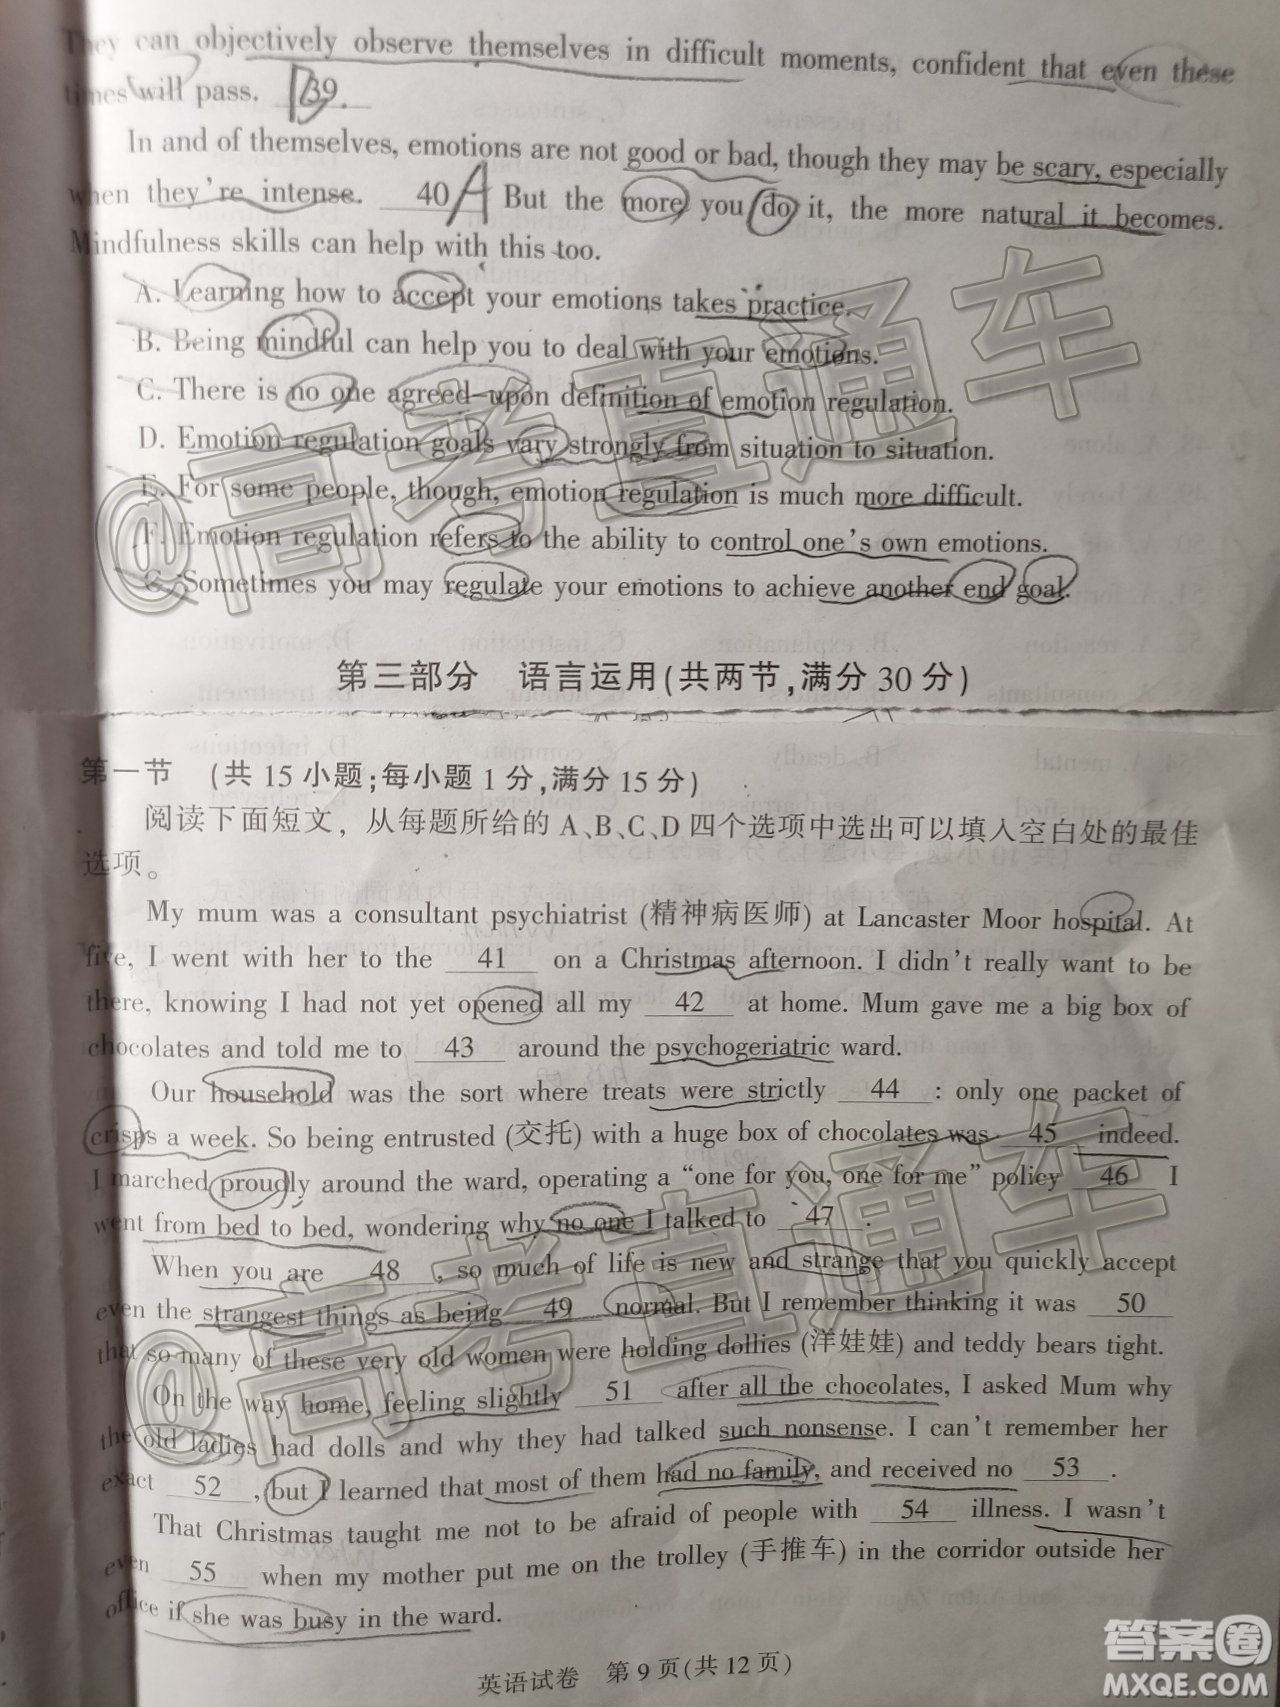 They can objectively observe themselves in difficult moments, confident that even these
times will pass. 39.
In and of themselves, emotions are not good or bad, though they may be scary, especially
when they're intense. 40 A But the more you do it, the more natural it becomes.
Mindfulness skills can help with this too.
A. Learning how to accept your emotions takes practice.
B. Being mindful can help you to deal with your emotions.
C. There is no one agreed-upon definition of emotion regulation.
D. Emotion regulation goals vary strongly from situation to situation.
E. For some people, though, emotion regulation is much more difficult.
F. Emotion regulation refers to the ability to control one's own emotions.
G. Sometimes you may regulate your emotions to achieve another end goal.
第三部分 语言运用(共两节,满分30分)
第一节 (共15小题;每小题1分,满分15分)
阅读下面短文，从每题所给的A、B、C、D四个选项中选出可以填入空白处的最佳
选项。
My mum was a consultant psychiatrist (精神病医师) at Lancaster Moor hospital. At
five, I went with her to the 41 on a Christmas afternoon. I didn't really want to be
there, knowing I had not yet opened all my 42 at home. Mum gave me a big box of
chocolates and told me to 43 around the psychogeriatric ward.
Our household was the sort where treats were strictly 44 : only one packet of
crisps a week. So being entrusted (交托) with a huge box of chocolates was 45 indeed.
I marched proudly around the ward, operating a "one for you, one for me" policy 46 I
went from bed to bed, wondering why no one I talked to 47 .
When you are 48 , so much of life is new and strange that you quickly accept
even the strangest things as being 49 normal. But I remember thinking it was 50
that so many of these very old women were holding dollies (洋娃娃) and teddy bears tight.
On the way home, feeling slightly 51 after all the chocolates, I asked Mum why
the old ladies had dolls and why they had talked such nonsense. I can't remember her
exact 52 , but I learned that most of them had no family, and received no 53 .
That Christmas taught me not to be afraid of people with 54 illness. I wasn't
even 55 when my mother put me on the trolley (手推车) in the corridor outside her
office if she was busy in the ward.
英语试卷 第9页(共12页)
@高考直通车
@高考直通车
答案圈
MXQE.COM